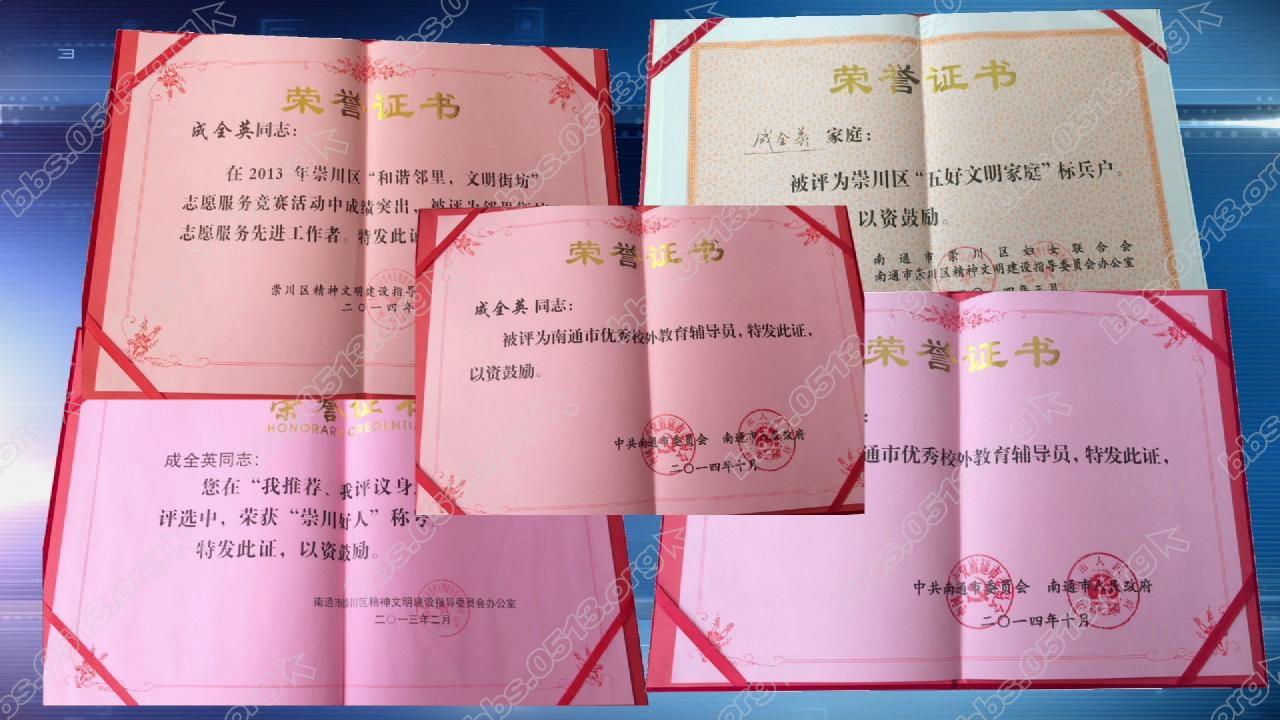 荣誉证书
成全英同志：
在 2013 年崇川区“和谐邻里，文明街坊”
志愿服务竞赛活动中成绩突出，被评为邻里街坊
志愿服务先进工作者。特发此证
崇川区精神文明建设指导
二〇一四年
荣誉证书
成全英 家庭：
被评为崇川区“五好文明家庭”标兵户。
以资鼓励。
南通市崇川区妇女联合会
南通市崇川区精神文明建设指导委员会办公室
二〇一四年三月
荣誉证书
成全英同志：
被评为南通市优秀校外教育辅导员，特发此证，
以资鼓励。
中共南通市委员会 南通市人民政府
二〇一四年十月
荣誉证书
HONORARY CREDENTI
成全英同志：
您在“我推荐、我评议身
评选中，荣获“崇川好人”称号。
特发此证，以资鼓励。
南通市崇川区精神文明建设指导委员会办公室
二〇一三年二月
荣誉证书
：
通市优秀校外教育辅导员，特发此证，
中共南通市委员会 南通市人民政府
二〇一四年十月
bbs.0513.org